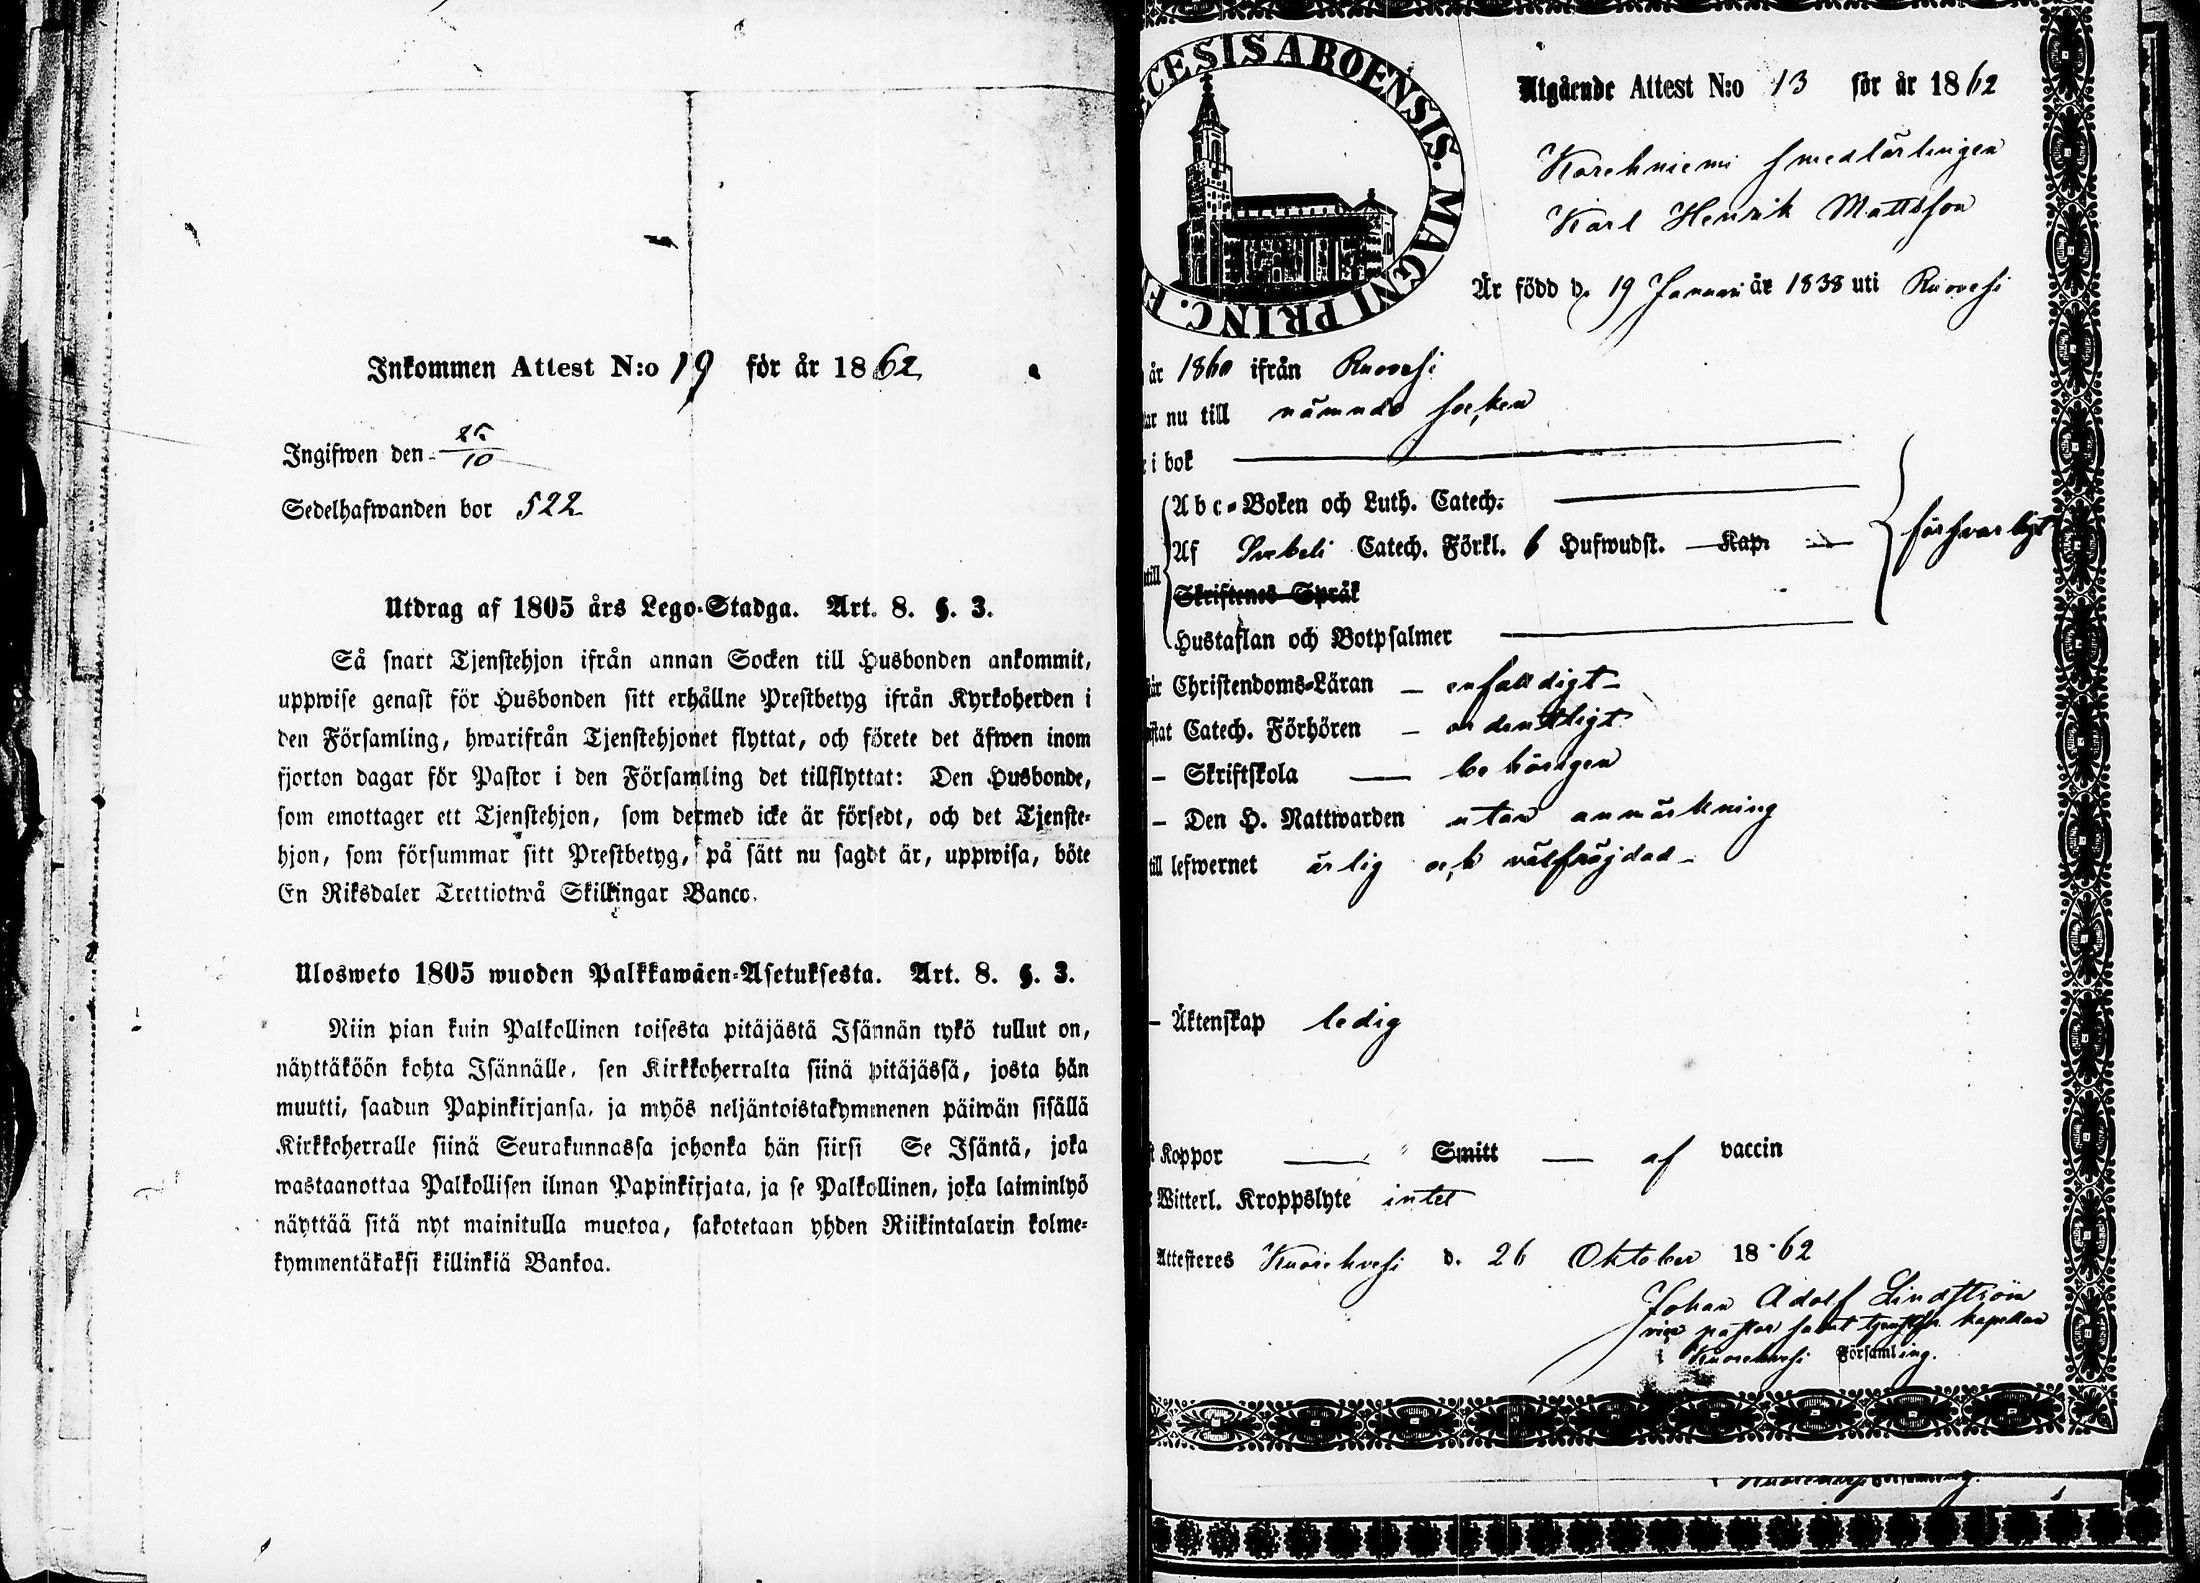 Inkommen Attest N:o 19 för år 1862
Ingifwen den 25/10
Sedelhafwanden bor 522
Utdrag af 1805 års Lego-Stadga. Art. 8. §. 3.
Så snart Tjenstehjon ifrån annan Socken till Husbonden ankommit,
uppwise genast för Husbonden sitt erhållne Prestbetyg ifrån Kyrkoherden i
den Församling, hwarifrån Tjenstehjonet flyttat, och förete det äfwen inom
fjorton dagar för Pastor i den Församling det tillflyttat: Den Husbonde,
som emottager ett Tjenstehjon, som dermed icke är försedt, och det Tjenste-
hjon, som försummar sitt Prestbetyg, på sätt nu sagdt är, uppwisa, böte
En Riksdaler Trettiotwå Skillingar Banco.
Ulosweto 1805 wuoden Palkkawäen-Asetuksesta. Art. 8. §. 3.
Niin pian kuin Palkollinen toisesta pitäjästä Isännän tykö tullut on,
näyttäköön kohta Isännälle, sen Kirkkoherralta siinä pitäjässä, josta hän
muutti, saadun Papinkirjansa, ja myös neljäntoistakymmenen päiwän sisällä
Kirkkoherralle siinä Seurakunnassa johonka hän siirsi Se Isäntä, joka
wastaanottaa Palkollisen ilman Papinkirjata, ja se Palkollinen, joka laiminlyö
näyttää sitä nyt mainitulla muotoa, sakotetaan yhden Riikintalarin kolme-
kymmentäkaksi killinkiä Bankoa.
CESIS ABOENSIS. MAGNI PRINC. F
Utgående Attest N:o 13 för år 1862
Korehniemi smedlärlingen
Karl Henrik Mattsson
Är född d. 19 Januari år 1838 uti Ruovesi
år 1860 ifrån Ruovesi
nu till nämnde socken
i bok
Abc-Boken och Luth. Catech.
Af Svebeli Catech. Förkl. 6 Hufwudst. Kap. försvarligt
till
Skriftenes Språk
Hustaflan och Botpsalmer
Christendoms-Läran – enfaldigt –
Catech. Förhören – ordentligt
– Skriftskola — behörigen
– Den H. Nattwarden utan anmärkning
till lefwernet ärlig och välfräjdad –
– Äktenskap ledig
Koppor — Smitt — af vaccin
Witterl. Kroppslyte intet
Attesteres Kuorehvesi d. 26 Oktober 1862
Johan Adolf Lindström
vice pastor samt kapellan
i Kuorehvesi Församling.